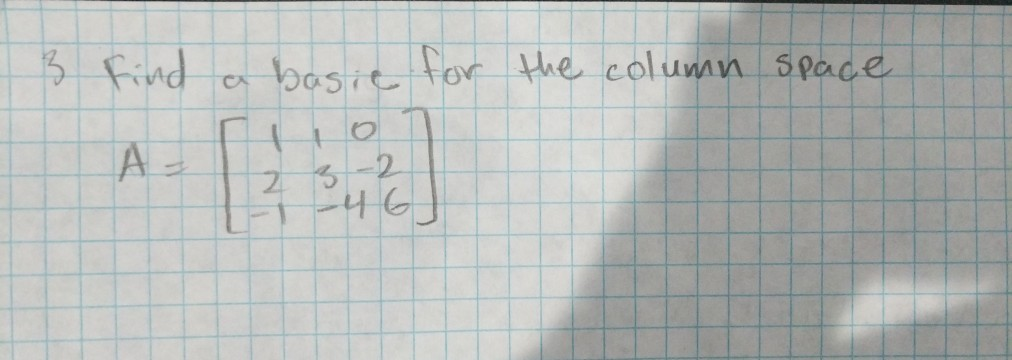 3 Find a basie for the column space
A = [ 1 1 0
2 3 -2
-1 -4 6 ]